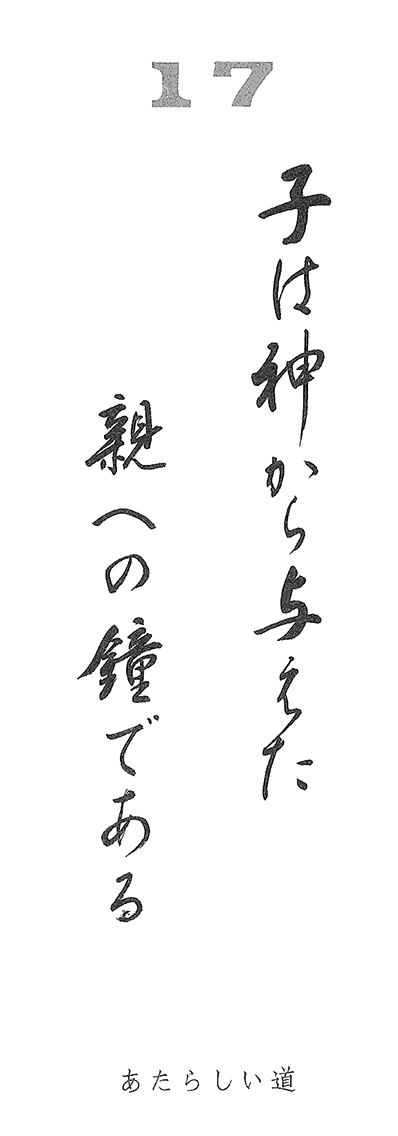 17
子は神から与えた
親への鐘である
あたらしい道